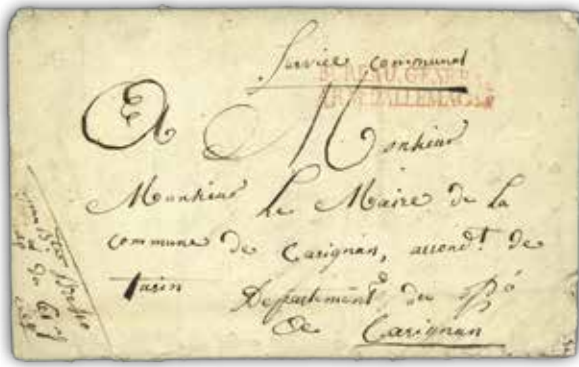 Service communal
BUREAU GENÉR.
ARM. D'ALLEMAGNE
A Monsieur
Monsieur Le Maire de La
commune de Carignan, arrond.t de
turin Departement du Pô
de Carignan